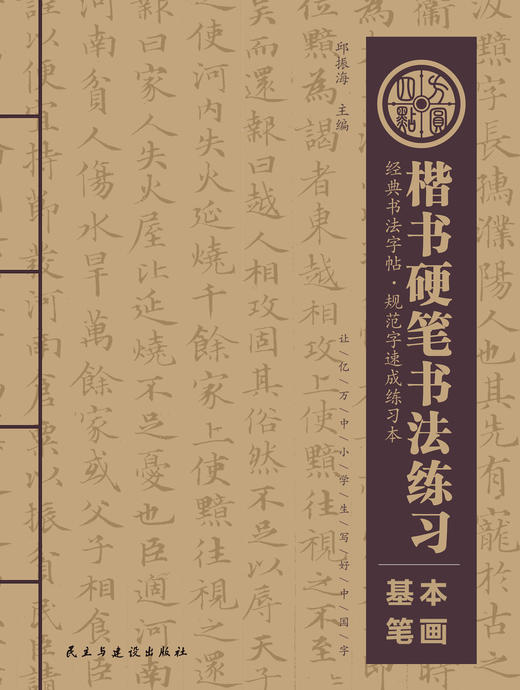 楷书硬笔书法练习
经典书法字帖·规范字速成练习本
基本
笔画
邱振海 主编
让/亿/万/中/小/学/生/写/好/中/国/字
民主与建设出版社
汲黯字長孺濮陽人也其先有寵於古之
位黯為謁者東越相攻上使黯往視之不至
吳而還報曰越人相攻固其俗然不足以辱天子
之使河内失火延燒千餘家上使黯往視之還
報曰家人失火屋比延燒不足憂也臣適河南
河南貧人傷水旱萬餘家或父子相食臣
謹以便宜持節發河南倉粟以振貧民臣